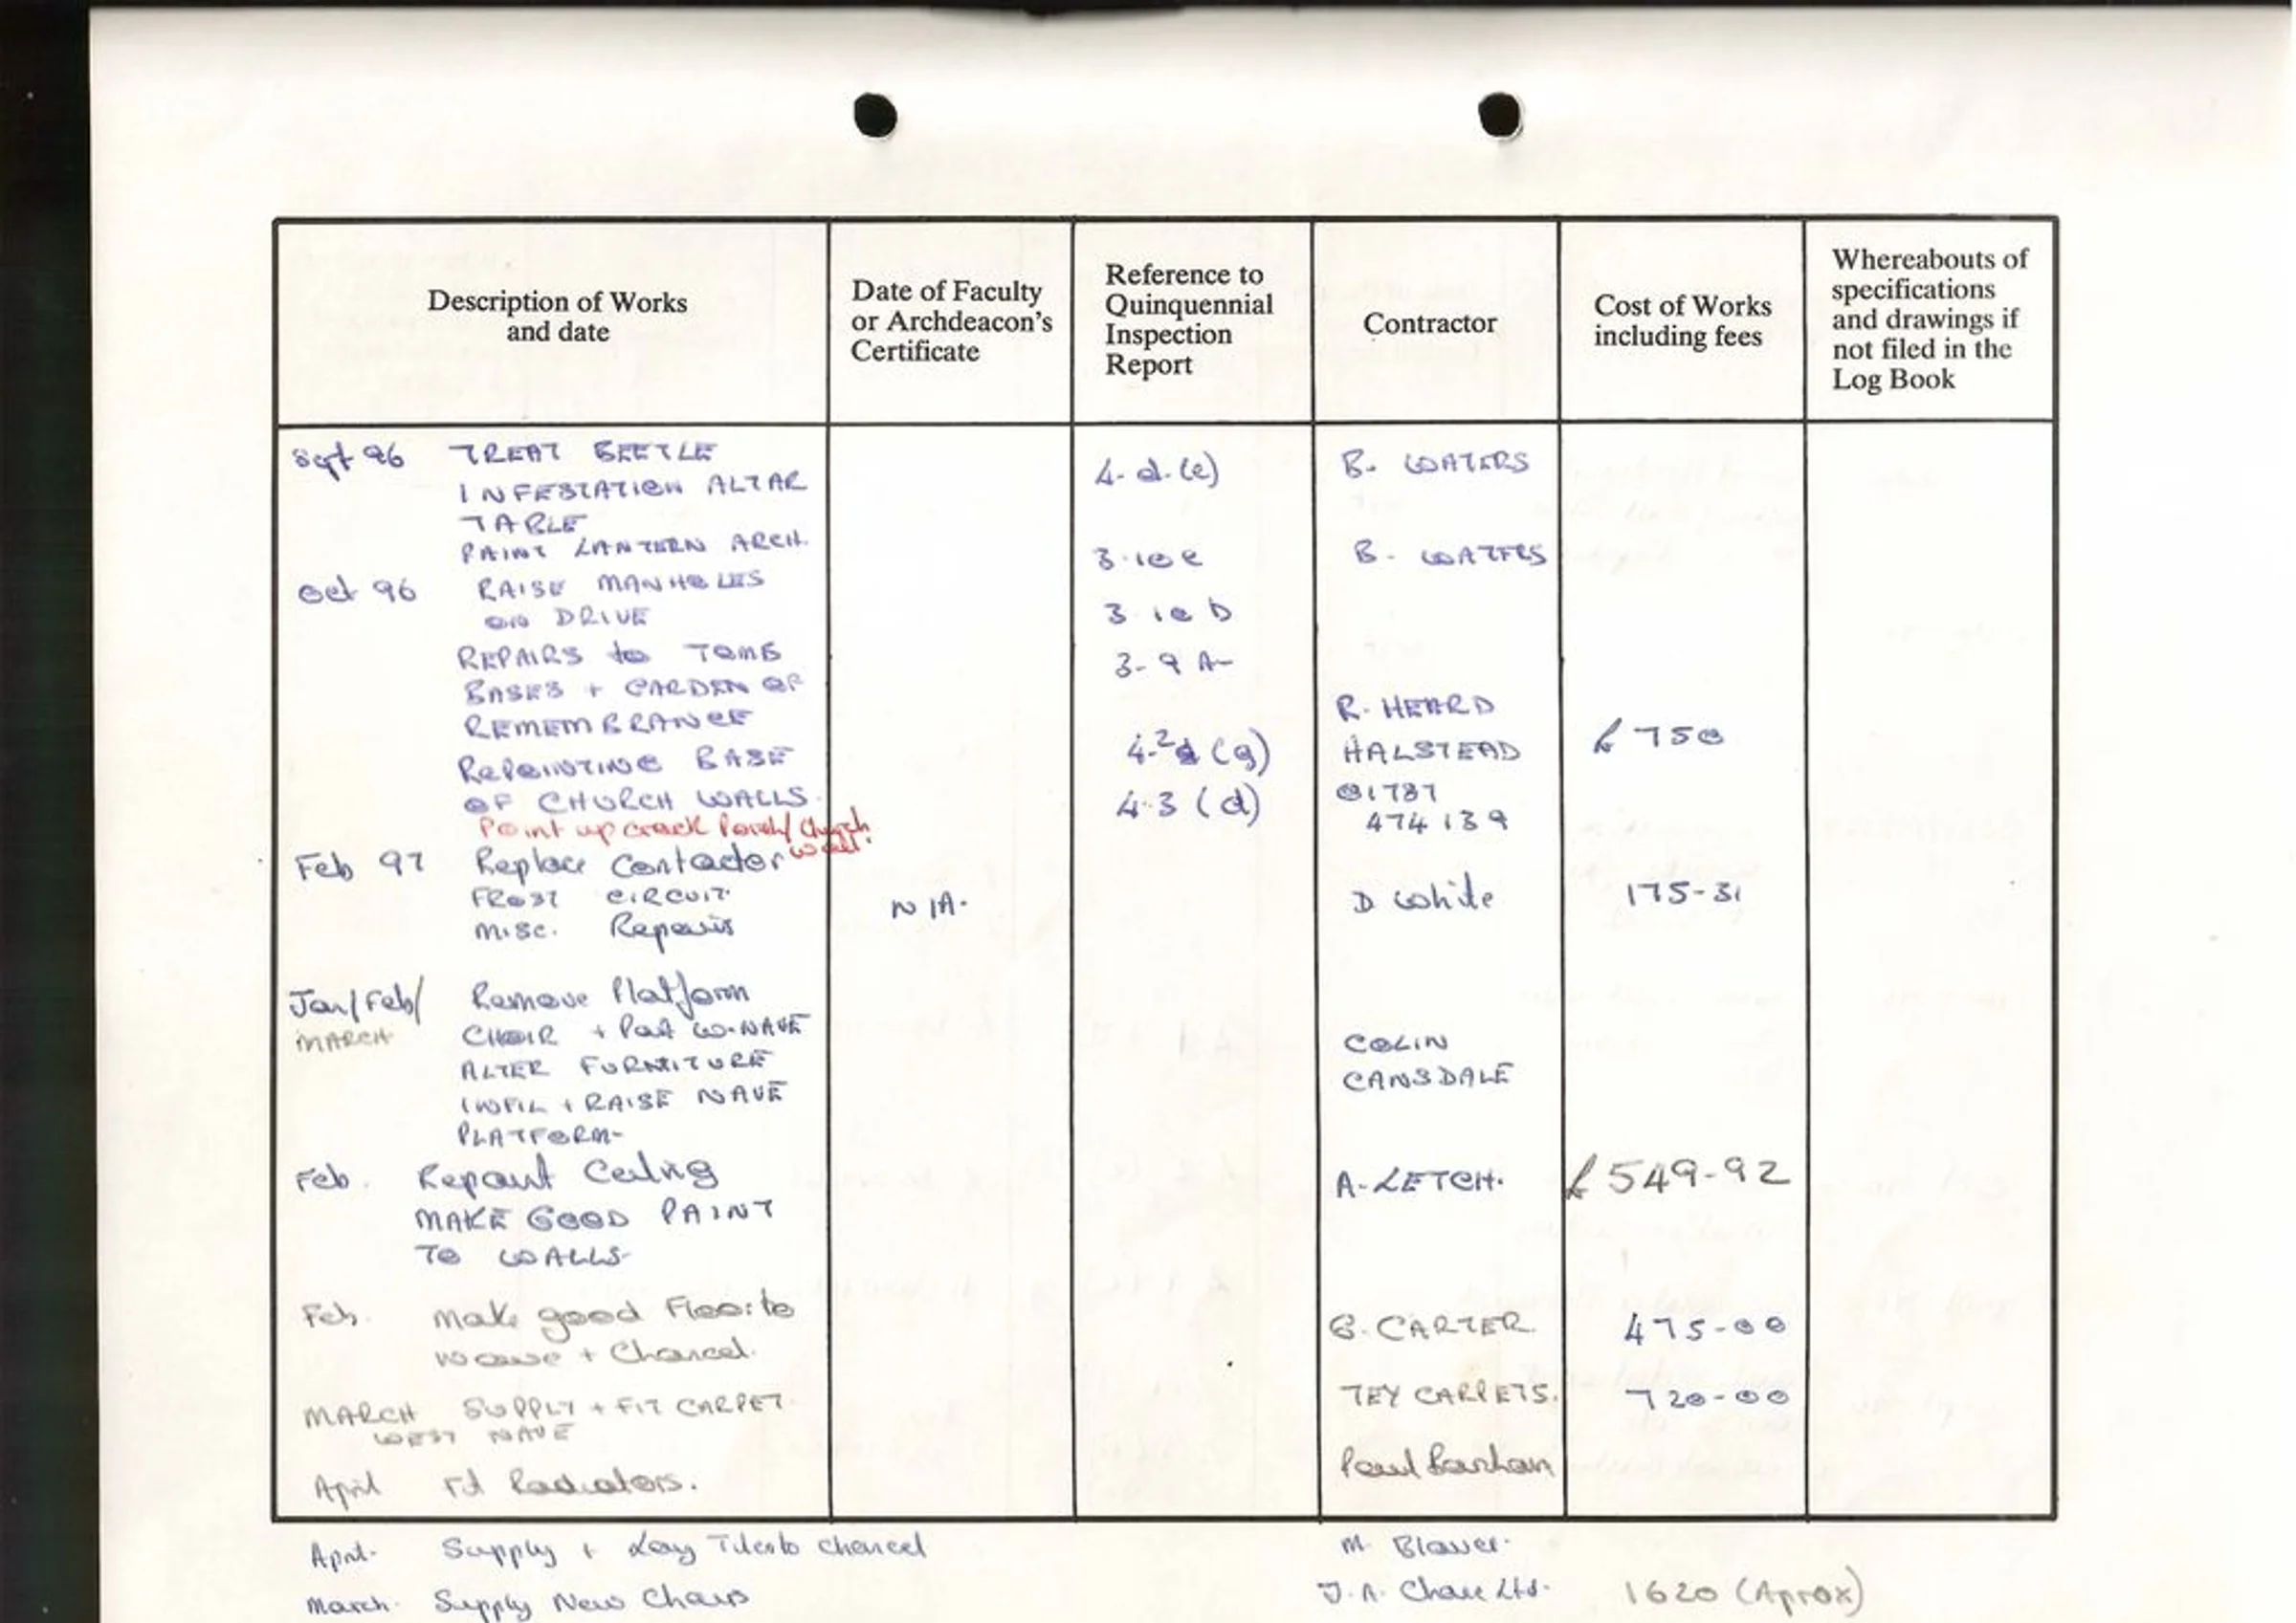 Description of Works
and date
Date of Faculty
or Archdeacon's
Certificate
Reference to
Quinquennial
Inspection
Report
Contractor
Cost of Works
including fees
Whereabouts of
specifications
and drawings if
not filed in the
Log Book
Sept 96 TREAT BEETLE
INFESTATION ALTAR
TABLE
4.2.(e) B. WATERS
PAINT LANTERN ARCH.
3.10 e B. WATERS
Oct 96 RAISE MANHOLES
ON DRIVE
3.10 b
REPAIRS to TOMB
BASES + GARDEN OF
REMEMBRANCE
3-9 A-
R. HEARD
HALSTEAD
01787
474139
£750
REPOINTING BASE
OF CHURCH WALLS.
4-2 (g)
4.3 (d)
Point up crack Porch/Church
wall.
Feb 97 Replace Contactor
FROST CIRCUIT
MISC. Repairs
N/A. D White 175-31
Jan/Feb/
MARCH
Remove Platform
CHOIR + Part W-NAVE
ALTER FURNITURE
INFIL + RAISE NAVE
PLATFORM-
COLIN
CANSDALE
Feb. Repaint Ceiling
MAKE GOOD PAINT
TO WALLS-
A. LETCH. £549-92
Feb. Make good Floor to
+ Chancel.
G. CARTER. 475-00
MARCH SUPPLY + FIT CARPET.
WEST NAVE
TEY CARPETS. 720-00
April Fit Radiators.
Paul
April. Supply + Lay Tiles to chancel
M.
March. Supply New Chairs
J.A. Ltd. 1620 (Aprox)